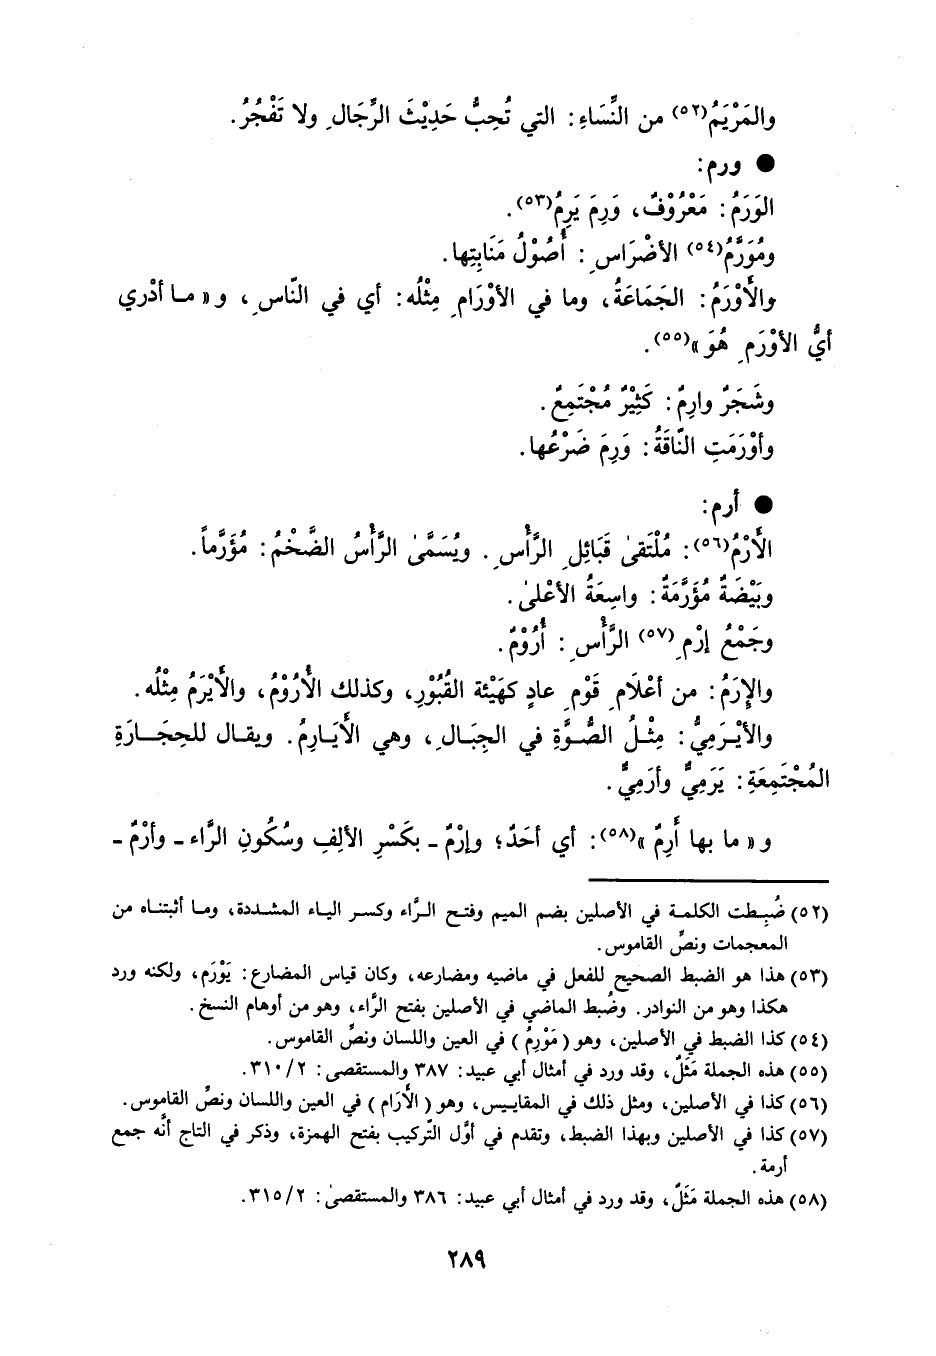 والمَرْيَمُ(٥٢) من النِّسَاءِ: التي تُحِبُّ حَدِيْثَ الرِّجَالِ ولا تَفْجُرُ.
● ورم:
الوَرَمُ: مَعْرُوْفٌ، وَرِمَ يَرِمُ(٥٣).
ومُوَرَّمُ(٥٤) الأضْرَاسِ: أُصُوْلُ مَنَابِتِها.
والأَوْرَمُ: الجَمَاعَةُ، وما في الأوْرَامِ مِثْلُه: أي في النّاسِ، و« ما أدْري
أيُّ الأوْرَمِ هُوَ »(٥٥).
وشَجَرٌ وارِمٌ: كَثِيْرٌ مُجْتَمِعٌ.
وأوْرَمَتِ النّاقَةُ: وَرِمَ ضَرْعُها.
● أرم:
الأَرْمُ(٥٦): مُلْتَقىٰ قَبَائِلِ الرَّأْسِ. ويُسَمَّىٰ الرَّأْسُ الضَّخْمُ: مُؤَرَّماً.
وبَيْضَةٌ مُؤَرَّمَةٌ: واسِعَةُ الأعْلىٰ.
وجَمْعُ إرْمِ(٥٧) الرَّأْسِ: أُرُوْمٌ.
والإرَمُ: من أعْلَامِ قَوْمِ عادٍ كهَيْئة القُبُوْرِ، وكذلك الأُرُوْمُ، والأَيْرَمُ مِثْلُه.
والأيْرَمِيُّ: مِثْلُ الصُّوَّةِ في الجِبَالِ، وهي الأَيَارِمُ. ويقال للحِجَارَةِ
المُجْتَمِعَةِ: يَرَمِيٌّ وأرَمِيٌّ.
و« ما بها أَرِمٌ »(٥٨): أي أحَدٌ؛ وإرْمٌ ـ بكَسْرِ الألِفِ وسُكُونِ الرَّاء ـ وأرْمٌ ـ
(٥٢) ضُبِطت الكلمة في الأصلين بضم الميم وفتح الرَّاء وكسر الياء المشددة، وما أثبتناه من
المعجمات ونصِّ القاموس.
(٥٣) هذا هو الضبط الصحيح للفعل في ماضيه ومضارعه، وكان قياس المضارع: يَوْرَم، ولكنه ورد
هكذا وهو من النوادر. وضُبط الماضي في الأصلين بفتح الرَّاء، وهو من أوهام النسخ.
(٥٤) كذا الضبط في الأصلين، وهو ( مَوْرِمُ ) في العين واللسان ونصِّ القاموس.
(٥٥) هذه الجملة مَثَلٌ، وقد ورد في أمثال أبي عبيد: ٣٨٧ والمستقصى: ٣١٠/٢.
(٥٦) كذا في الأصلين، ومثل ذلك في المقاييس، وهو ( الأَرَام ) في العين واللسان ونصُّ القاموس.
(٥٧) كذا في الأصلين وبهذا الضبط، وتقدم في أوَّل التّركيب بفتح الهمزة، وذكر في التاج أنَّه جمع
أرمة.
(٥٨) هذه الجملة مَثَلٌ، وقد ورد في أمثال أبي عبيد: ٣٨٦ والمستقصىٰ: ٣١٥/٢.
٢٨٩